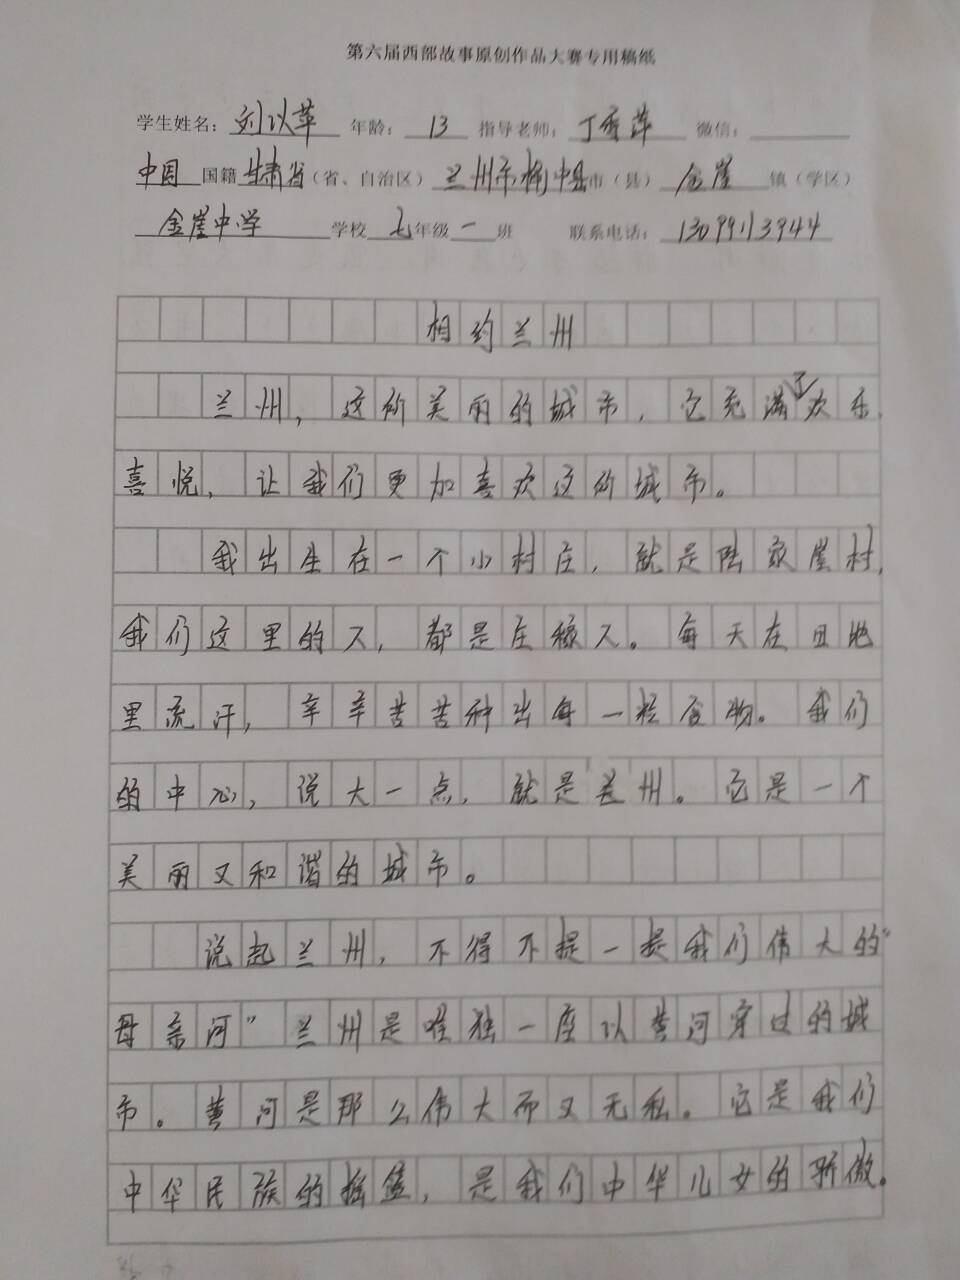 第六届西部故事原创作品大赛专用稿纸
学生姓名：刘以苹 年龄：13 指导老师：丁秀萍 微信：
中国 国籍 甘肃省（省、自治区）兰州市榆中县市（县）金崖 镇（学区）
金崖中学 学校 七年级一班 联系电话：13099113944
相约兰州
兰州，这所美丽的城市，它充满了欢乐，
喜悦，让我们更加喜欢这所城市。
我出生在一个小村庄，就是陆家崖村，
我们这里的人，都是庄稼人。每天在田地
里流汗，辛辛苦苦种出每一粒食物。我们
的中心，说大一点，就是兰州。它是一个
美丽又和谐的城市。
说起兰州，不得不提一提我们伟大的“
母亲河”兰州是唯独一座以黄河穿过的城
市。黄河是那么伟大而又无私。它是我们
中华民族的摇篮，是我们中华儿女的骄傲。